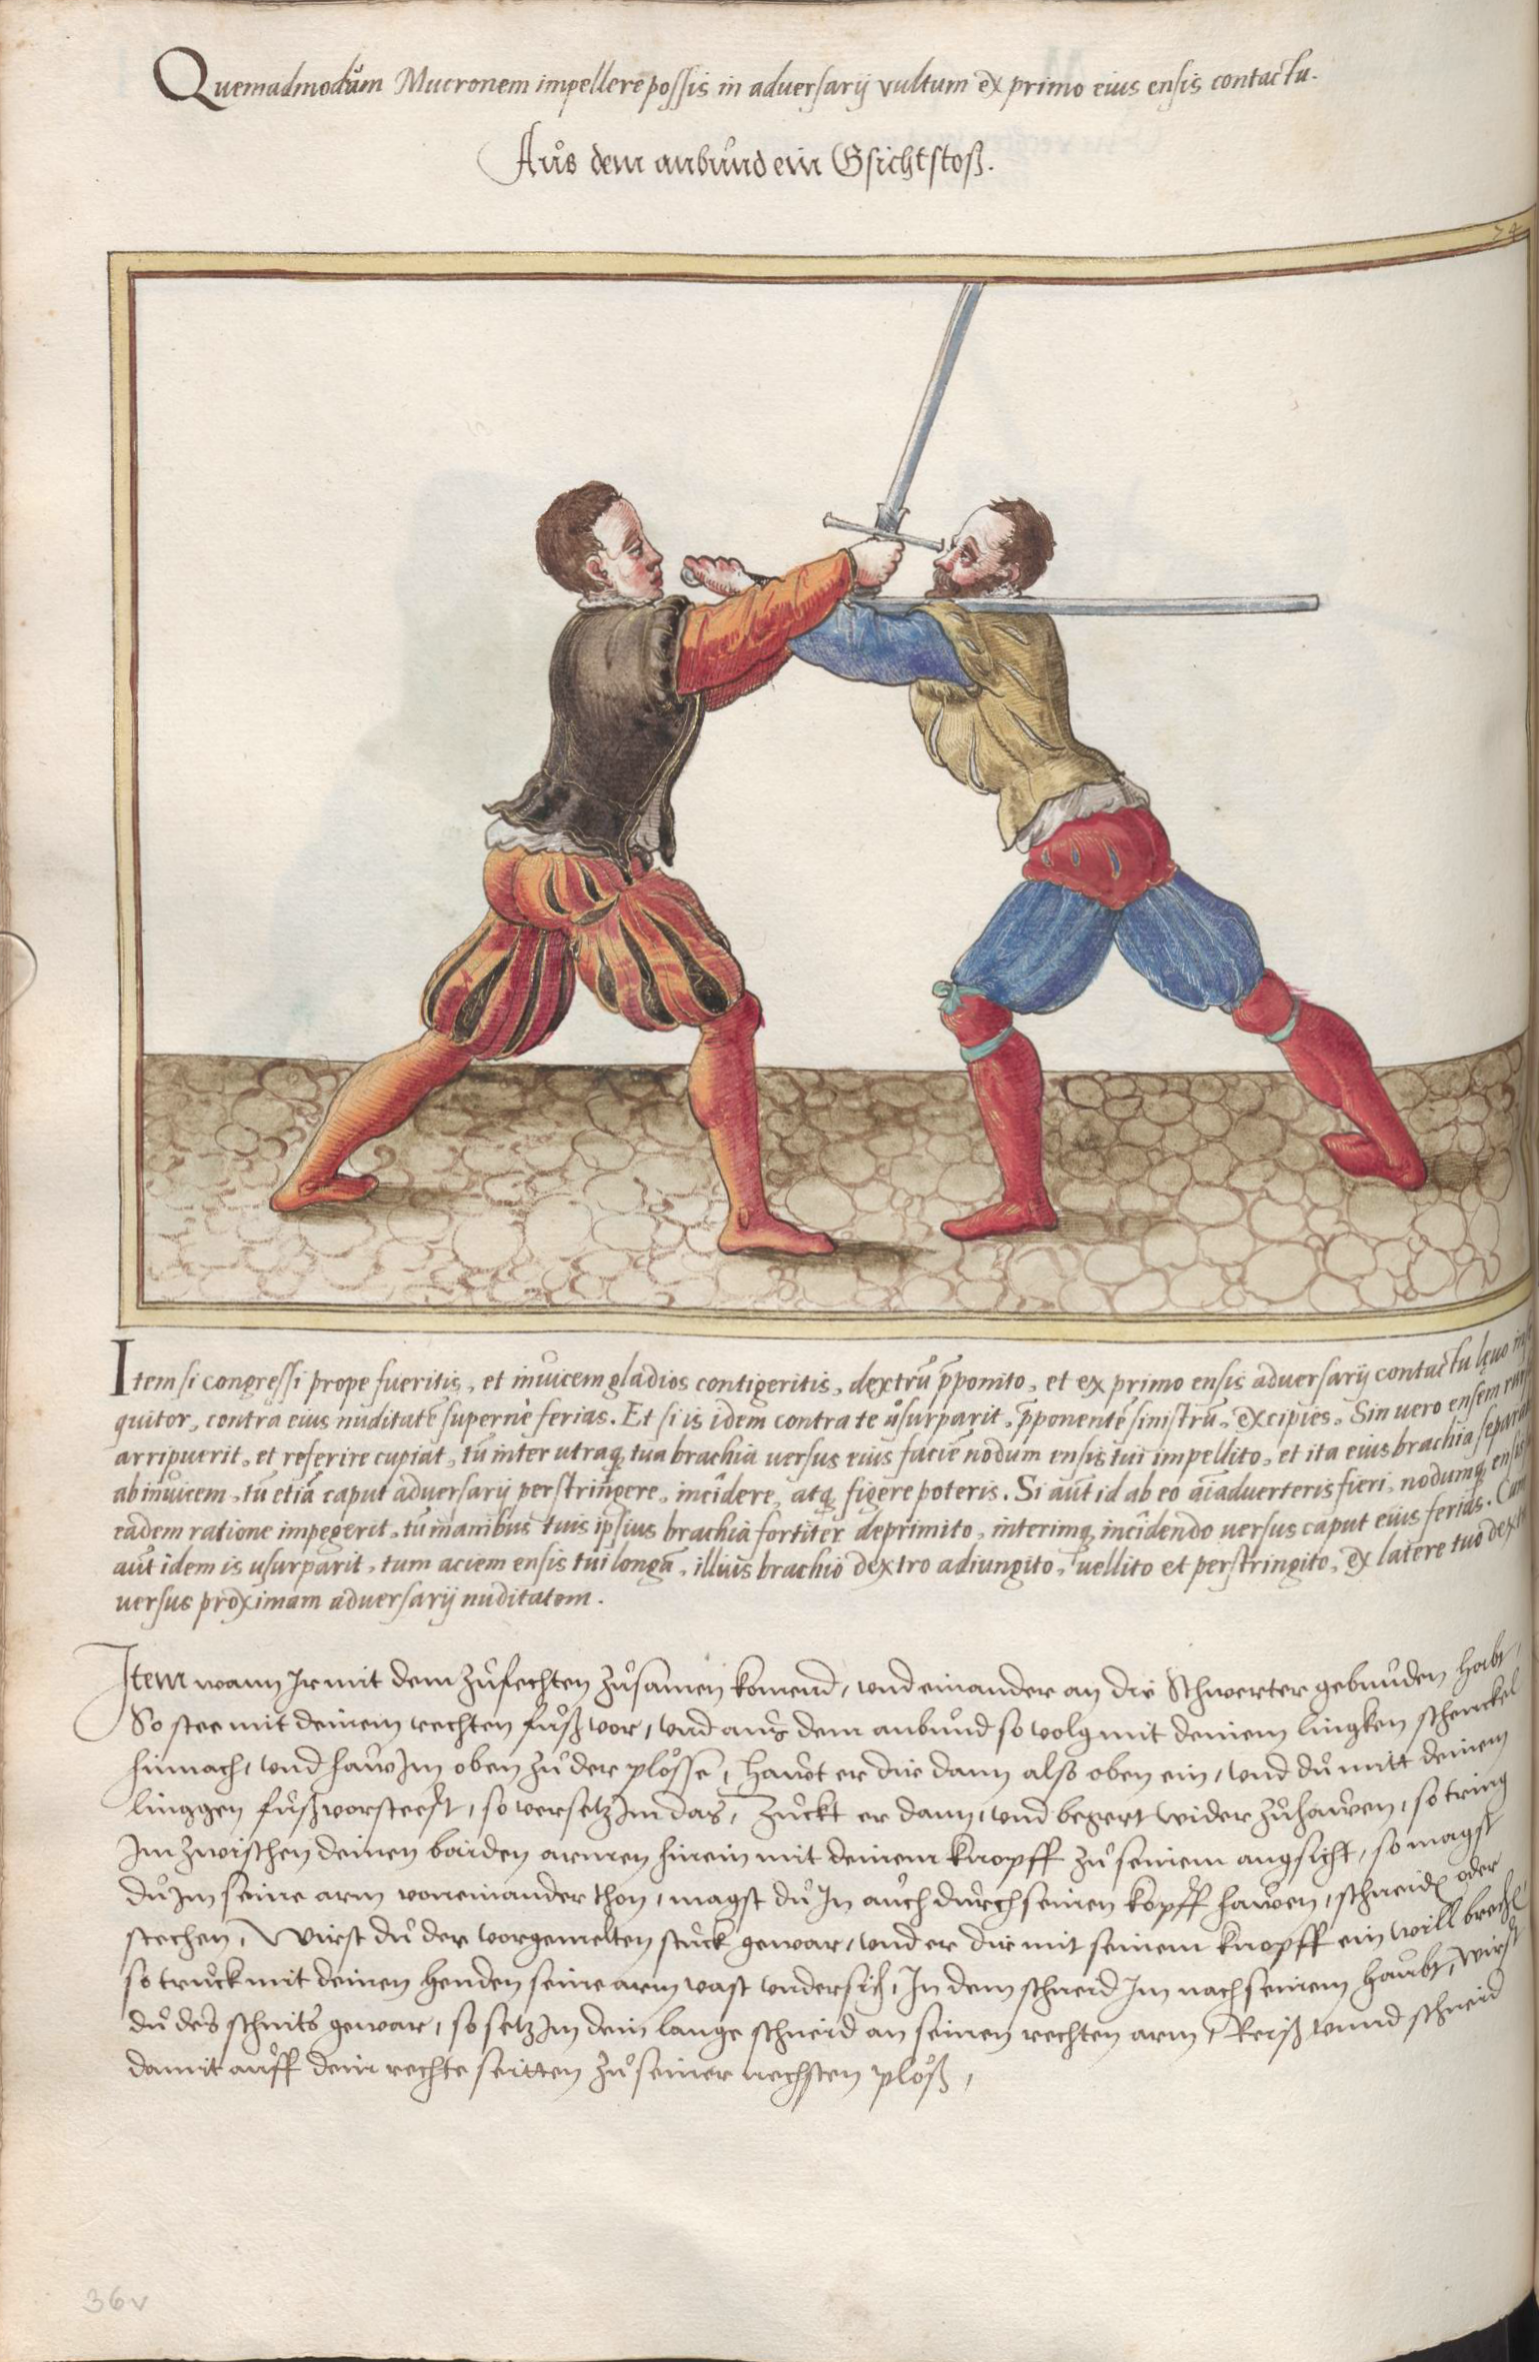 Quemadmodům Mucronem impellere possis in adversarij vultum ex primo eius ensis contactu.
Aůs dem anbůnd ein Gsichtstoß.
74
Item si congressi prope fueritis, et inůicem gladios contigeritis, dextrū p̄ponito, et ex primo ensis adversarij contactu lęuo
quitor, contra eius nuditatē supernè ferias. Et si is idem contra te ůsurparit, p̄ponentē sinistrū, excipies. Sin uero ensem
arripuerit, et referire cupiat, tū inter utraq; tua brachia versus eius faciē nodum ensis tui impellito, et ita eius brachia
ab inůicem, tū etiā caput adversarij perstringere, incîdere, atq; figere poteris. Si aūt id ab eo aīaduerteris fieri, nodumq; ensis
eadem ratione impegerit, tū manibus tuis ipsius brachia fortiter deprimito, interimq; incîdendo uersus caput eius ferias. Cum
aūt idem is usurparit, tum aciem ensis tui longā, illius brachio dextro adiungito, uellito et perstringito, ex latere tuo dextro
versus proximam adversarij nuditatem.
Item wann Ir mit dem zůfechten zůsamen komend, und einander an die Schwerter gebunden habt,
So stee mit deinem rechten fůß vor, und aus dem anbůnd so volg mit deinem lingken schenckel
hinnach, und haw Im oben zů der plösse, Hawt er dir dann also oben ein, und dů mitt deinem
linggen fůß vorsteest, so versetz Im das, Zůckt er dann, und begert wider zůhawen, so tring
Im zwischen deinen baiden armen hinein mit deinem knopff zů seinem angsicht, so magst
dů Im seine arm voneinander thon, magst dů In aůch důrch seinen kopff hawen, schneiden oder
stechen, Wirst dů der vorgemelten stůck gewar, und er dir mit seinem knopff ein will brechen
so trůck mit deinen henden seine arm vast undersich, In dem schneid Im nach seinem haůbt, Wirst
dů des schnits gewar, so setz Im dein lange schneid an seinen rechten arm, Reiß unnd schneid
damit aůff dein rechte seitten zů seiner nechsten plöß,
36v